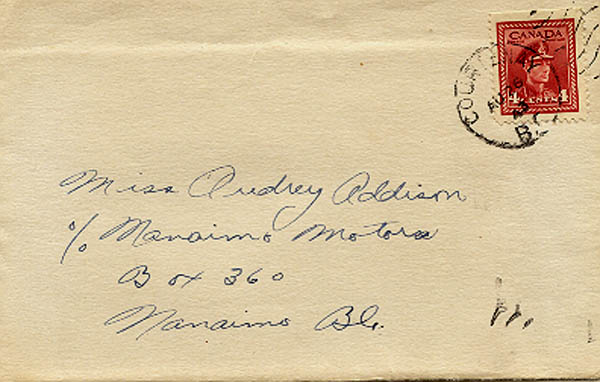 CANADA
4 CENTS 4
COURTENAY
AU 26
43
B.C.
Miss Audrey Addison
% Nanaimo Motors
Box 360
Nanaimo B.C.